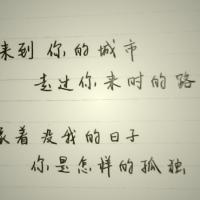 来到你的城市
走过你来时的路
着没我的日子
你是怎样的孤独